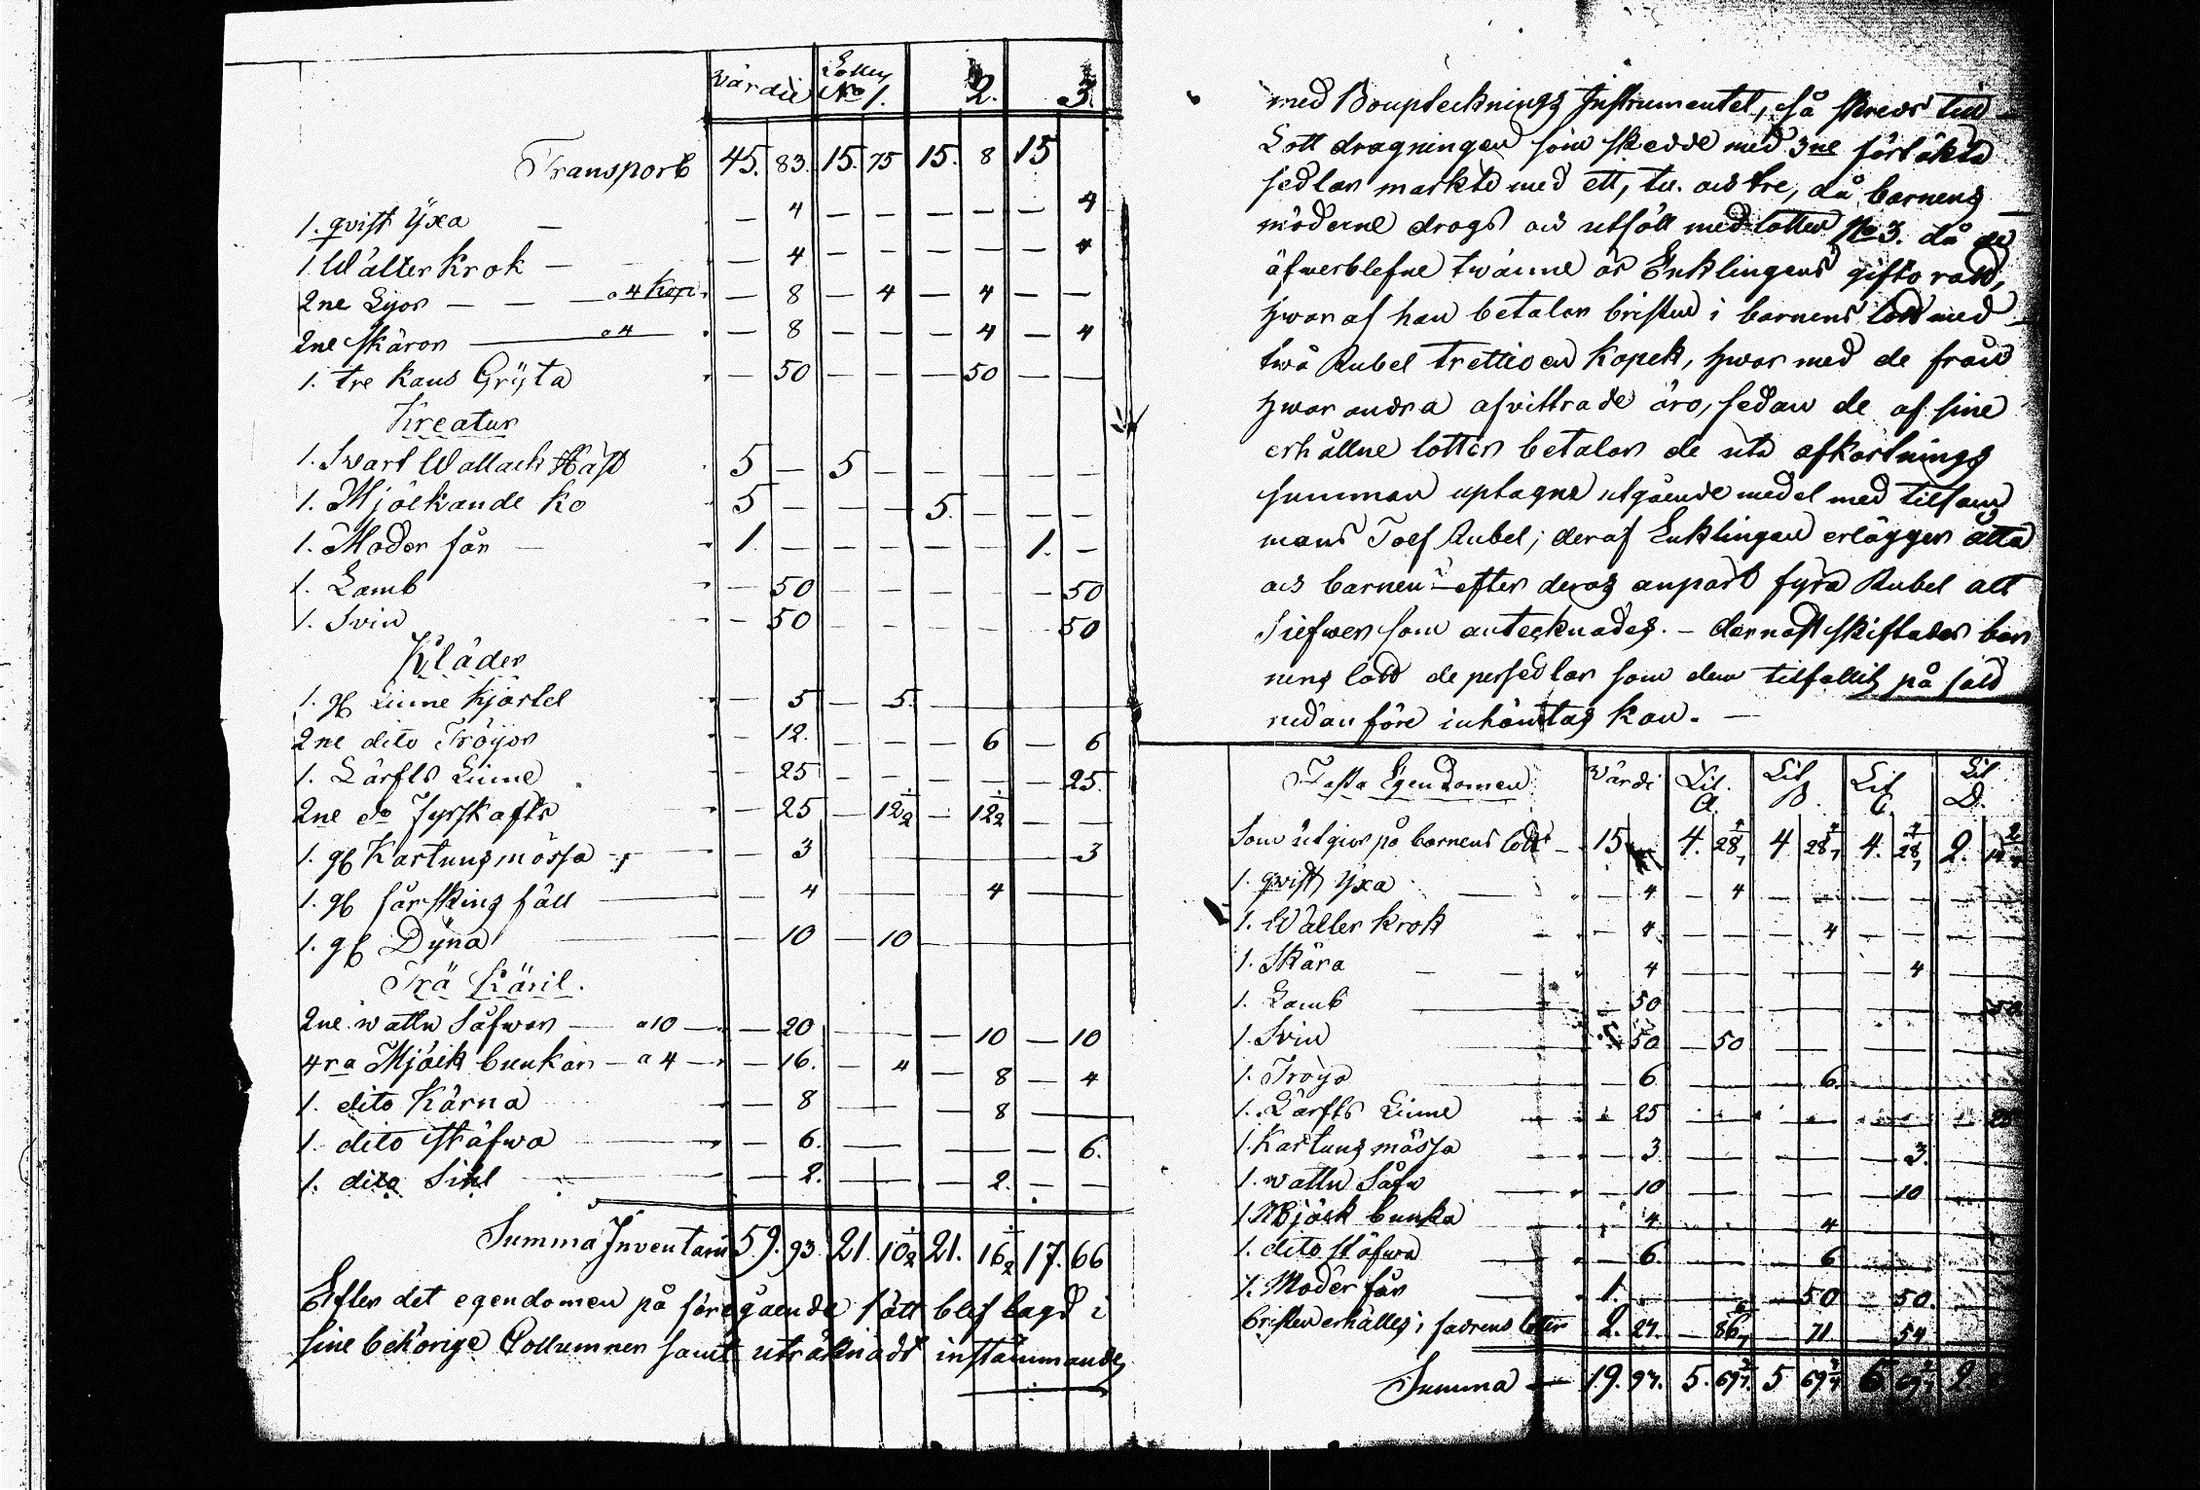 Värdie Lotten No 1. 2. 3.
Transport 45. 83. 15. 75 15. 8 15
1. qvist Yxa — — 4 — — — — — 4
1 Wälter krok — — 4 — — — — — 4
2ne Lijor — — — a 4 kop. — 8 — 4 — 4 — —
2ne skäror — a 4 — — 8 — — — 4 — 4
1. tre kans Gryta — 50 — — — 50 — —
Kreatur
1. Svart Wallach Häst 5 — 5 — — — — —
1. Mjölkande ko 5 — — — 5. — — —
1. Moder får — 1. — — — — — 1. —
1. Lamb — 50 — — — — — 50
1. Svin — 50 — — — — — 50
Kläder
1. gl Linne kjortel — 5 — 5. —
2ne dito Tröijor — 12. — — — 6 — 6
1. Lärfts Linne — 25 — — — — — 25.
2ne do Fyrskafts — 25 — 12 1/2 — 12 1/2 — —
1. gl Kartuns mössa — 3 — 3
1. gl fårskins fäll — 4 — 4 —
1. gl Dyna — 10 — 10 —
Trä Käril.
2ne wattu Såfwar — a 10 — — 20 — — — 10 — 10
4ra Mjölk bunkar — a 4 — — 16. — 4 — 8 — 4
1. dito Kärna — 8 — — 8 —
1. dito stäfwa — 6. — — — 6.
1. dito Sihl — 2. — — 2. — —
Summa Inventarii 59. 93. 21. 10 1/2 21. 16 1/2 17. 66
Efter det egendomen på föregående sätt blef lagd i
sine behörige Collumner samt uträknadt instämmande
med Bouptecknings Instrumentet, så skreds till
Lott dragningen som skedde med 3ne förseglade
sedlar märkte med ett, tu och tre, då barnens
möderne drogs och utföll med lotten No 3. då de
äfwerblefne twänne är Enklingens giftorätt,
hwaraf han betalar bristen i barnens lott med
två Rubel trettio en kopek, hwarmed de från
hwarandra afvittrade äro, sedan de af sine
erhållne lotter betalar de uti afkortnings
summan uptagne utgående medel med tilsam
mans Tolf Rubel; deraf Enklingen erlägger åtta
och barnen efter deras anpart fyra Rubel alt
Silfwer som antecknades. — dernäst skiftades bar
nens lott de persedlar som dem tilfallit på sätt
nedanföre inhämtas kan. —
Fasta Egendomen Värdi Lit. A. Lit B. Lit C Lit D.
Som utgior på barnens lott — 15 4. 28 4/7 4 28 4/7 4. 28 4/7 2. 14 2/7
1. qvist Yxa — 4 — 4 — — — —
1. Wälter krok — 4. — — — 4 — —
1. Skära — 4 — — 4 —
1. Lamb — 50 — — — 50
1. Svin 50 — 50 — — —
1. Tröya — 6 — — 6. —
1. Lärfts Linne 25 25
1. Kartuns mössa — 3. — — 3. —
1. wattu Såfw — 10 — — 10 —
1 Mjölk bunka 4. — — 4 —
1. dito stäfwa — 6. — — 6 —
1. Moder får 1. — — 50 — 50. —
bristen erhålles i fadrens lotter 2. 27. — 86 6/7 — 71 — 54
Summa — 19. 97. 5. 69 3/7 5 69 4/7 6 69 4/7 2